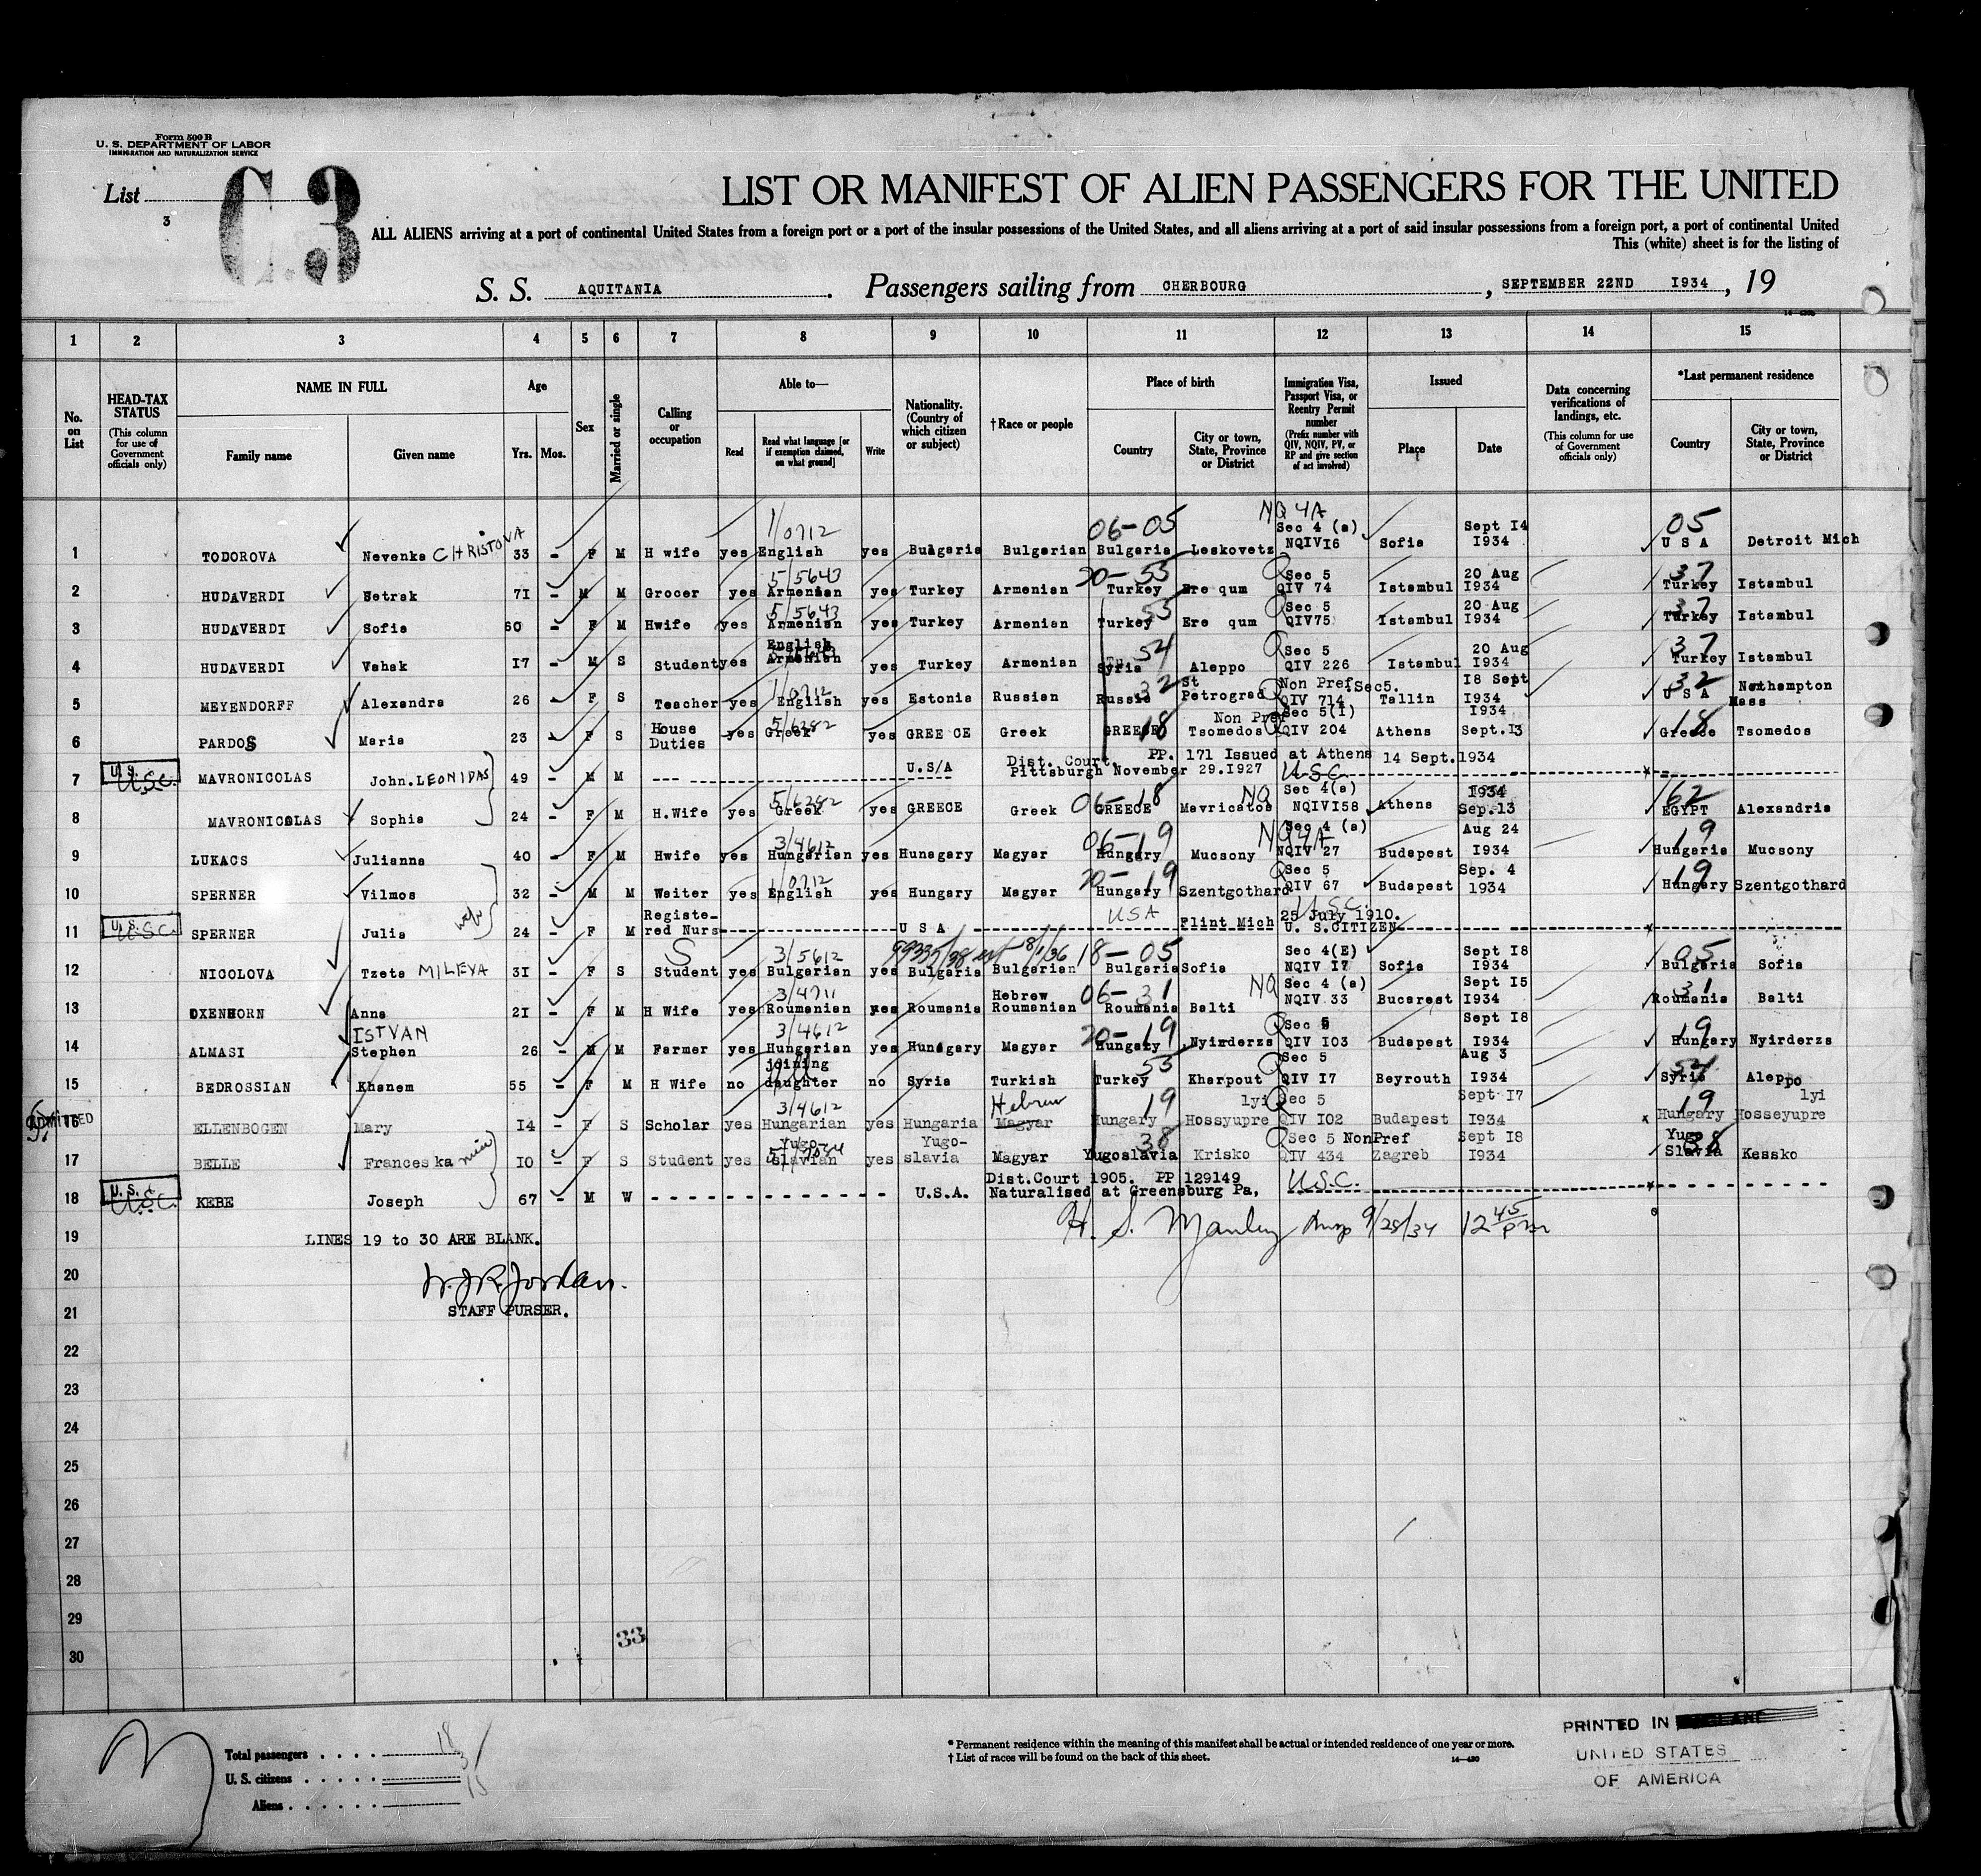 Form 500 B
U. S. DEPARTMENT OF LABOR
IMMIGRATION AND NATURALIZATION SERVICE
List
3
C.3
LIST OR MANIFEST OF ALIEN PASSENGERS FOR THE UNITED
ALL ALIENS arriving at a port of continental United States from a foreign port or a port of the insular possessions of the United States, and all aliens arriving at a port of said insular possessions from a foreign port, a port of continental United
This (white) sheet is for the listing of
S. S. AQUITANIA. Passengers sailing from CHERBOURG, SEPTEMBER 22ND 1934, 19
1 2 3 4 5 6 7 8 9 10 11 12 13 14 15
No. on List
HEAD-TAX STATUS (This column for use of Government officials only)
NAME IN FULL
Family name Given name
Age
Yrs. Mos.
Sex
Married or single
Calling or occupation
Able to—
Read Read what language [or if exemption claimed, on what ground] Write
Nationality. (Country of which citizen or subject)
†Race or people
Place of birth
Country City or town, State, Province or District
Immigration Visa, Passport Visa, or Reentry Permit number (Prefix number with QIV, NQIV, PV, or RP and give section of act involved)
Issued
Place Date
Data concerning verifications of landings, etc. (This column for use of Government officials only)
*Last permanent residence
Country City or town, State, Province or District
1/0712 06-05 NQ 4A Sec 4 (a) Sept I4 05
1 TODOROVA Nevenka CHRISTOVA 33 - F M H wife yes English yes Bulgaria Bulgarian Bulgaria Leskovetz NQIVI6 Sofia I934 U S A Detroit Mich
5/5643 20-55 Sec 5 20 Aug 37
2 HUDAVERDI Setrak 7I - M M Grocer yes Armenian yes Turkey Armenian Turkey Ere qum QIV 74 Istambul I934 Turkey Istambul
5/5643 55 Sec 5 20 Aug 37
3 HUDAVERDI Sofia 60 - F M Hwife yes Armenian yes Turkey Armenian Turkey Ere qum QIV75 Istambul I934 Turkey Istambul
English 54 Sec 5 20 Aug 37
4 HUDAVERDI Vahak I7 - M S Student yes Armenian yes Turkey Armenian Syria Aleppo QIV 226 Istambul I934 Turkey Istambul
1/0712 32 St Non Pref. Sec5. I8 Sept 32
5 MEYENDORFF Alexandra 26 - F S Teacher yes English yes Estonia Russian Russia Petrograd QIV 714 Tallin I934 U S A Northampton Mass
House Duties 5/6282 18 Non Pref Sec 5(I) I934 18
6 PARDOS Maria 23 - F S yes Greek yes GREECE Greek GREECE Tsomedos QIV 204 Athens Sept.I3 Greece Tsomedos
U.S.C. Dist. Court, PP. 171 Issued at Athens 14 Sept.1934
7 MAVRONICOLAS John. LEONIDAS 49 - M M --- U.S/A Pittsburgh November 29.I927 U.S.C.
5/6282 06-18 NQ Sec 4(a) I934 62
8 MAVRONICOLAS Sophia 24 - F M H.Wife yes Greek yes GREECE Greek GREECE Mavricatos NQIVI58 Athens Sep.13 EGYPT Alexandria
3/4612 06-19 NQ 4A Sec 4 (a) Aug 24 19
9 LUKACS Julianna 40 - F M Hwife yes Hungarian yes Hunagary Magyar Hungary Mucsony NQIV 27 Budapest I934 Hungaria Mucsony
1/0712 20-19 Sec 5 Sep. 4 19
10 SPERNER Vilmos 32 - M M Waiter yes English yes Hungary Magyar Hungary Szentgothard QIV 67 Budapest 1934 Hungary Szentgothard
wife
U.S.C. Registe- USA U.S.C. 25 July 1910.
11 SPERNER Julia 24 - F M red Nurs U S A Flint Mich U. S.CITIZEN
S 3/5612 8/1/36 18-05 Sec 4(E) Sept I8 05
12 NICOLOVA Tzeta MILEVA 3I - F S Student yes Bulgarian yes Bulgaria Bulgarian Bulgaria Sofia NQIV I7 Sofia I934 Bulgaria Sofia
3/4711 Hebrew 06-31 NQ Sec 4 (a) Sept I5 31
13 OXENHORN Anna 2I - F M H Wife yes Roumanian yes Roumania Roumanian Roumania Balti NQIV 33 Bucarest I934 Roumania Balti
ISTVAN 3/4612 20-19 Sec 5 Sept I8 19
14 ALMASI Stephen 26 - M M Farmer yes Hungarian yes Hunagary Magyar Hungary Nyirderzs QIV I03 Budapest I934 Hungary Nyirderzs
joining 55 Sec 5 Aug 3 54
15 BEDROSSIAN Khanem 55 - F M H Wife no daughter no Syria Turkish Turkey Kharpout QIV I7 Beyrouth I934 Syria Aleppo
ADMITTED 3/4612 Hebrew 19 lyi Sec 5 Sept I7 19 lyi
16 ELLENBOGEN Mary I4 - F S Scholar yes Hungarian yes Hungaria Magyar Hungary Hossyupre QIV I02 Budapest I934 Hungary Hosseyupre
Yugo- Yugo- 38 Sec 5 NonPref Sept I8 Yugo 38
17 BELLE Franceska niece I0 - F S Student yes Slavian yes slavia Magyar Yugoslavia Krisko QIV 434 Zagreb I934 Slavia Kessko
U.S.C. Dist.Court 1905. PP 129149
18 KEBE Joseph 67 - M W U.S.A. Naturalised at Greensburg Pa, U.S.C.
H. S. Manley Insp 9/28/34 12 45 pm
19 LINES 19 to 30 ARE BLANK.
20 W.J.R.Jordan.
21 STAFF PURSER.
22
23
24
25
26
27
28
29
33
30
Total passengers . . . . 18
U. S. citizens . . . . . 3
Aliens . . . . . . 15
* Permanent residence within the meaning of this manifest shall be actual or intended residence of one year or more.
† List of races will be found on the back of this sheet.
14—430
PRINTED IN
UNITED STATES
OF AMERICA